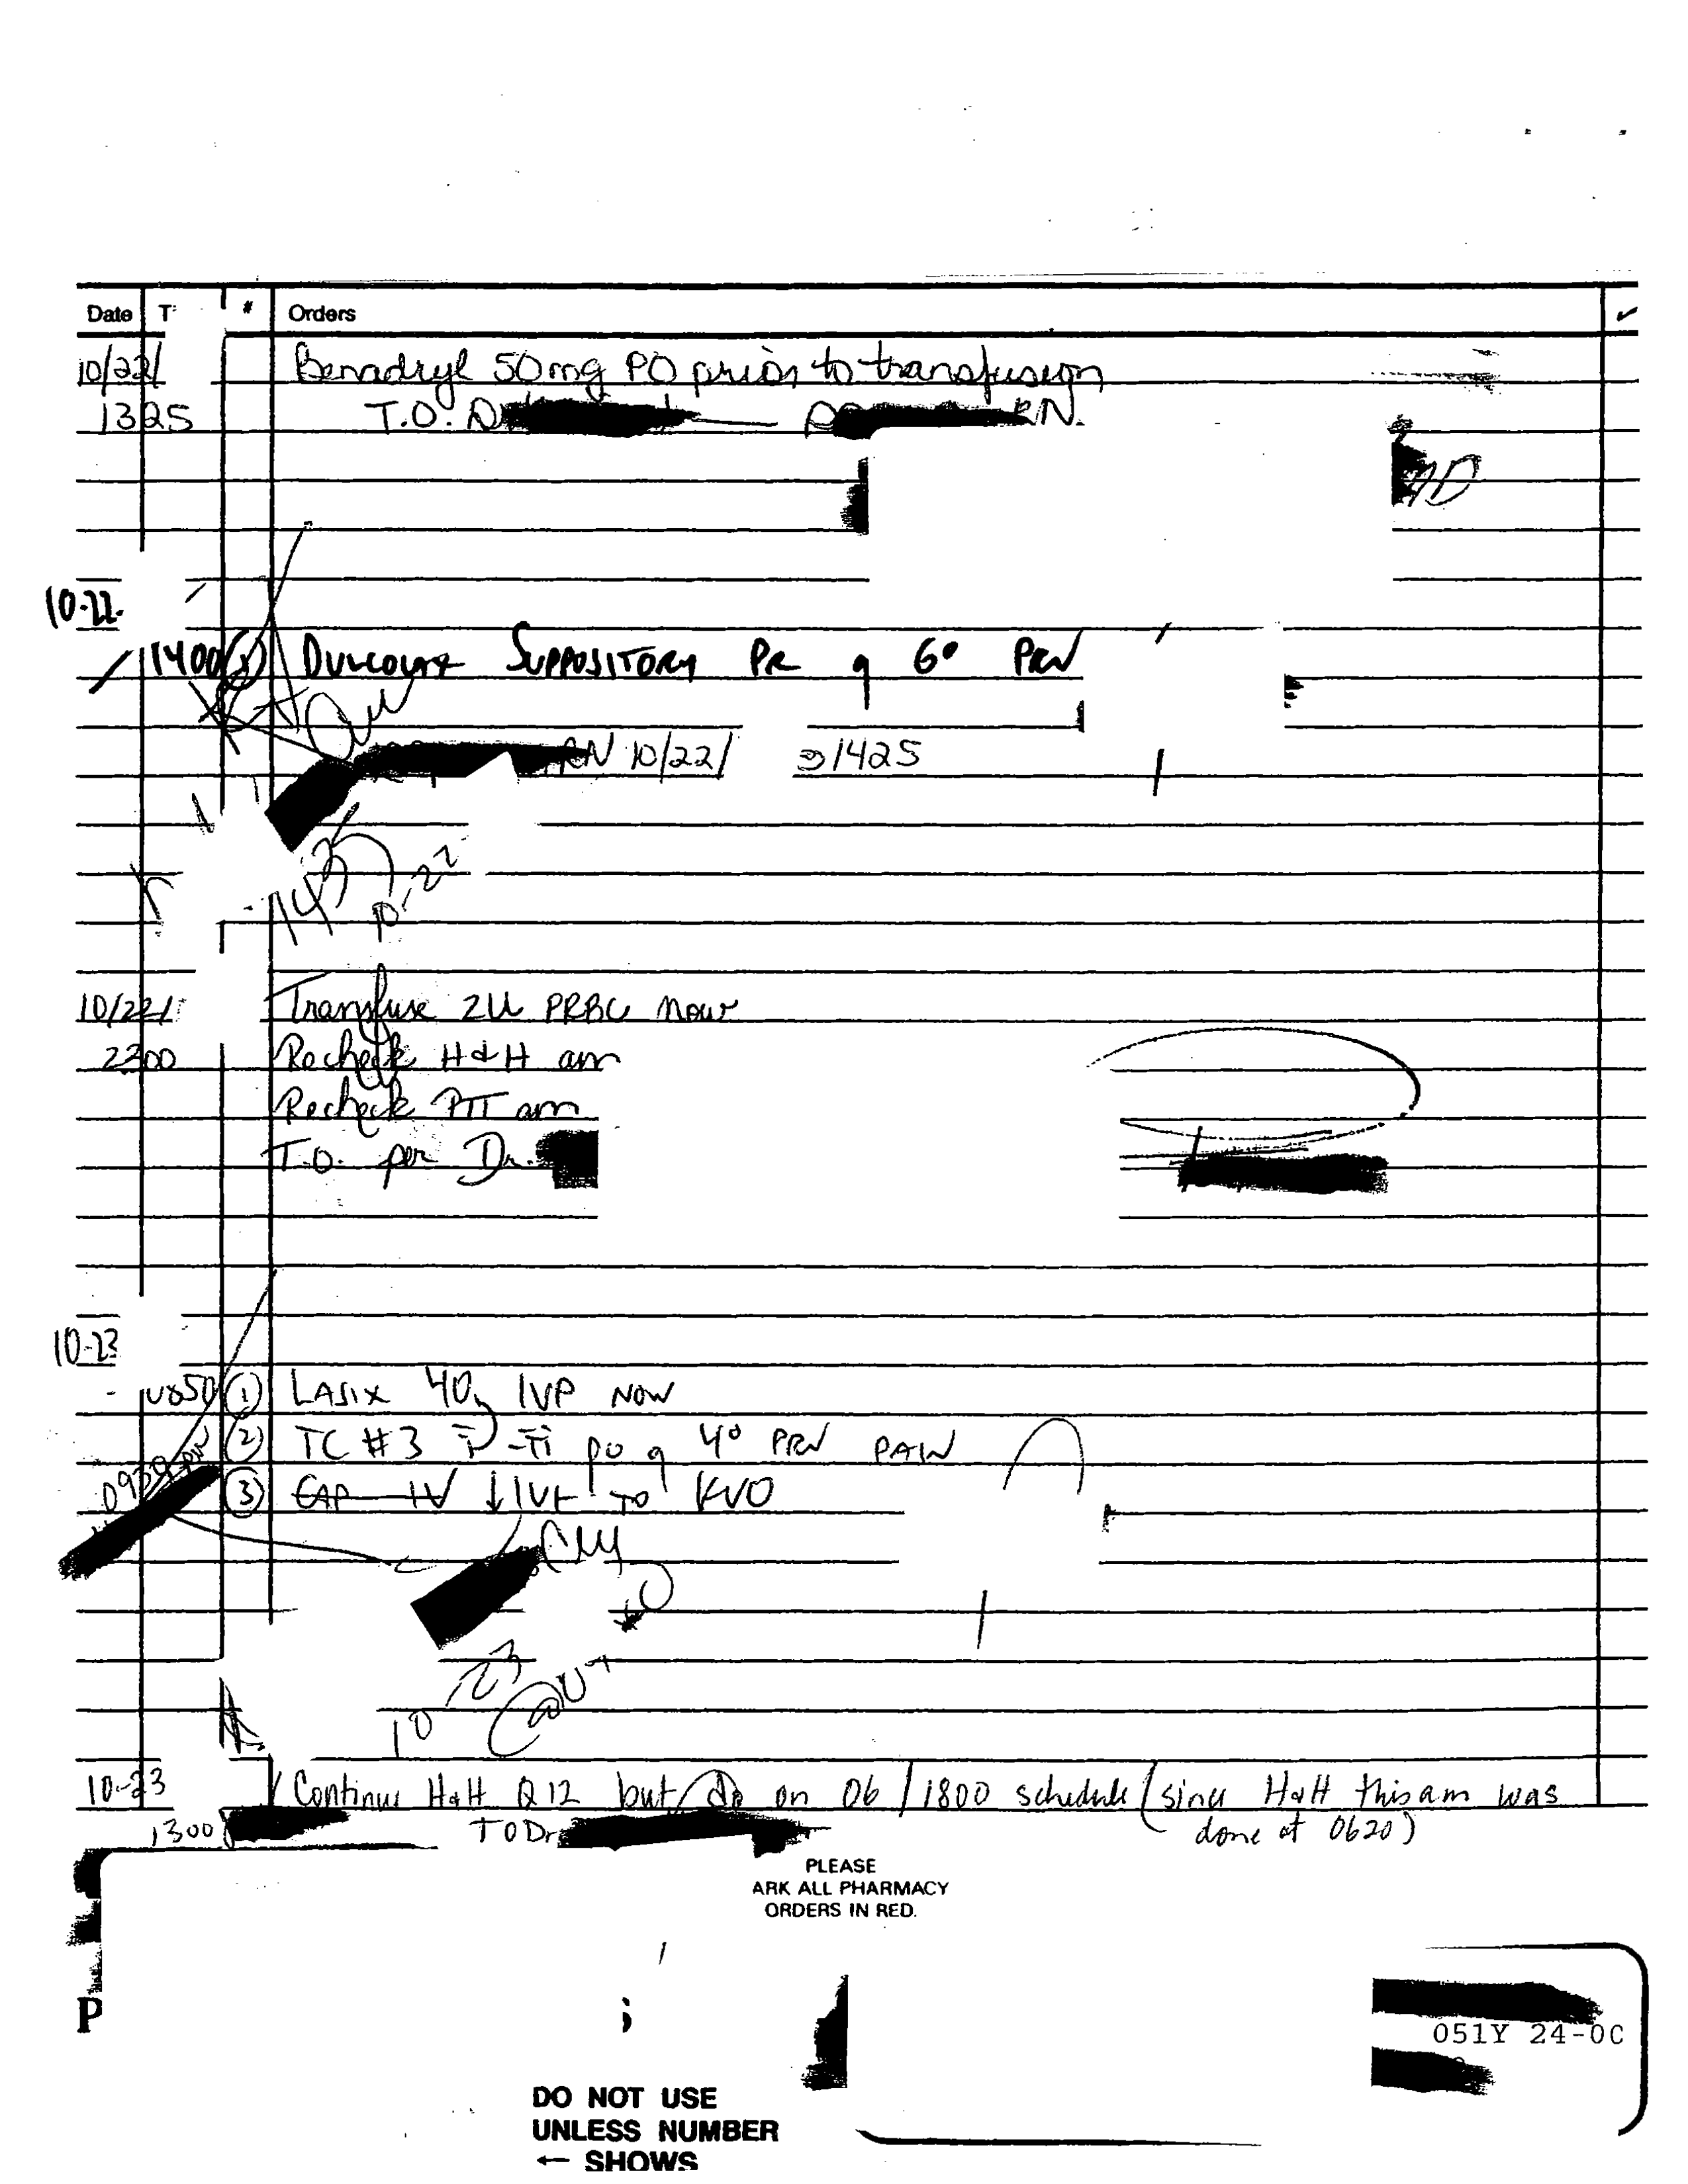 Date T # Orders ✓
10/22/ Benadryl 50mg PO prior to transfusion
1325 T.O. D RN.
MD
10-22-
1400 (1) DULCOLAX SUPPOSITORY PR q 6° PRN
RN 10/22/ 1425
1435
10-22
10/22/ Transfuse 2U PRBC now
2200 Recheck H&H am
Recheck PTT am
T.O. per Dr.
10-23
0850 (1) LASIX 40 IVP NOW
(2) TC #3 i-ii po q 4° PRN PAIN
(3) CAP IV ↓ IVF TO KVO
0930
10 23
10-23 Continue H&H Q12 but do on 06/1800 schedule (since H&H this am was
1300 TO Dr done at 0620)
PLEASE
ARK ALL PHARMACY
ORDERS IN RED.
P
051Y 24-OC
DO NOT USE
UNLESS NUMBER
← SHOWS